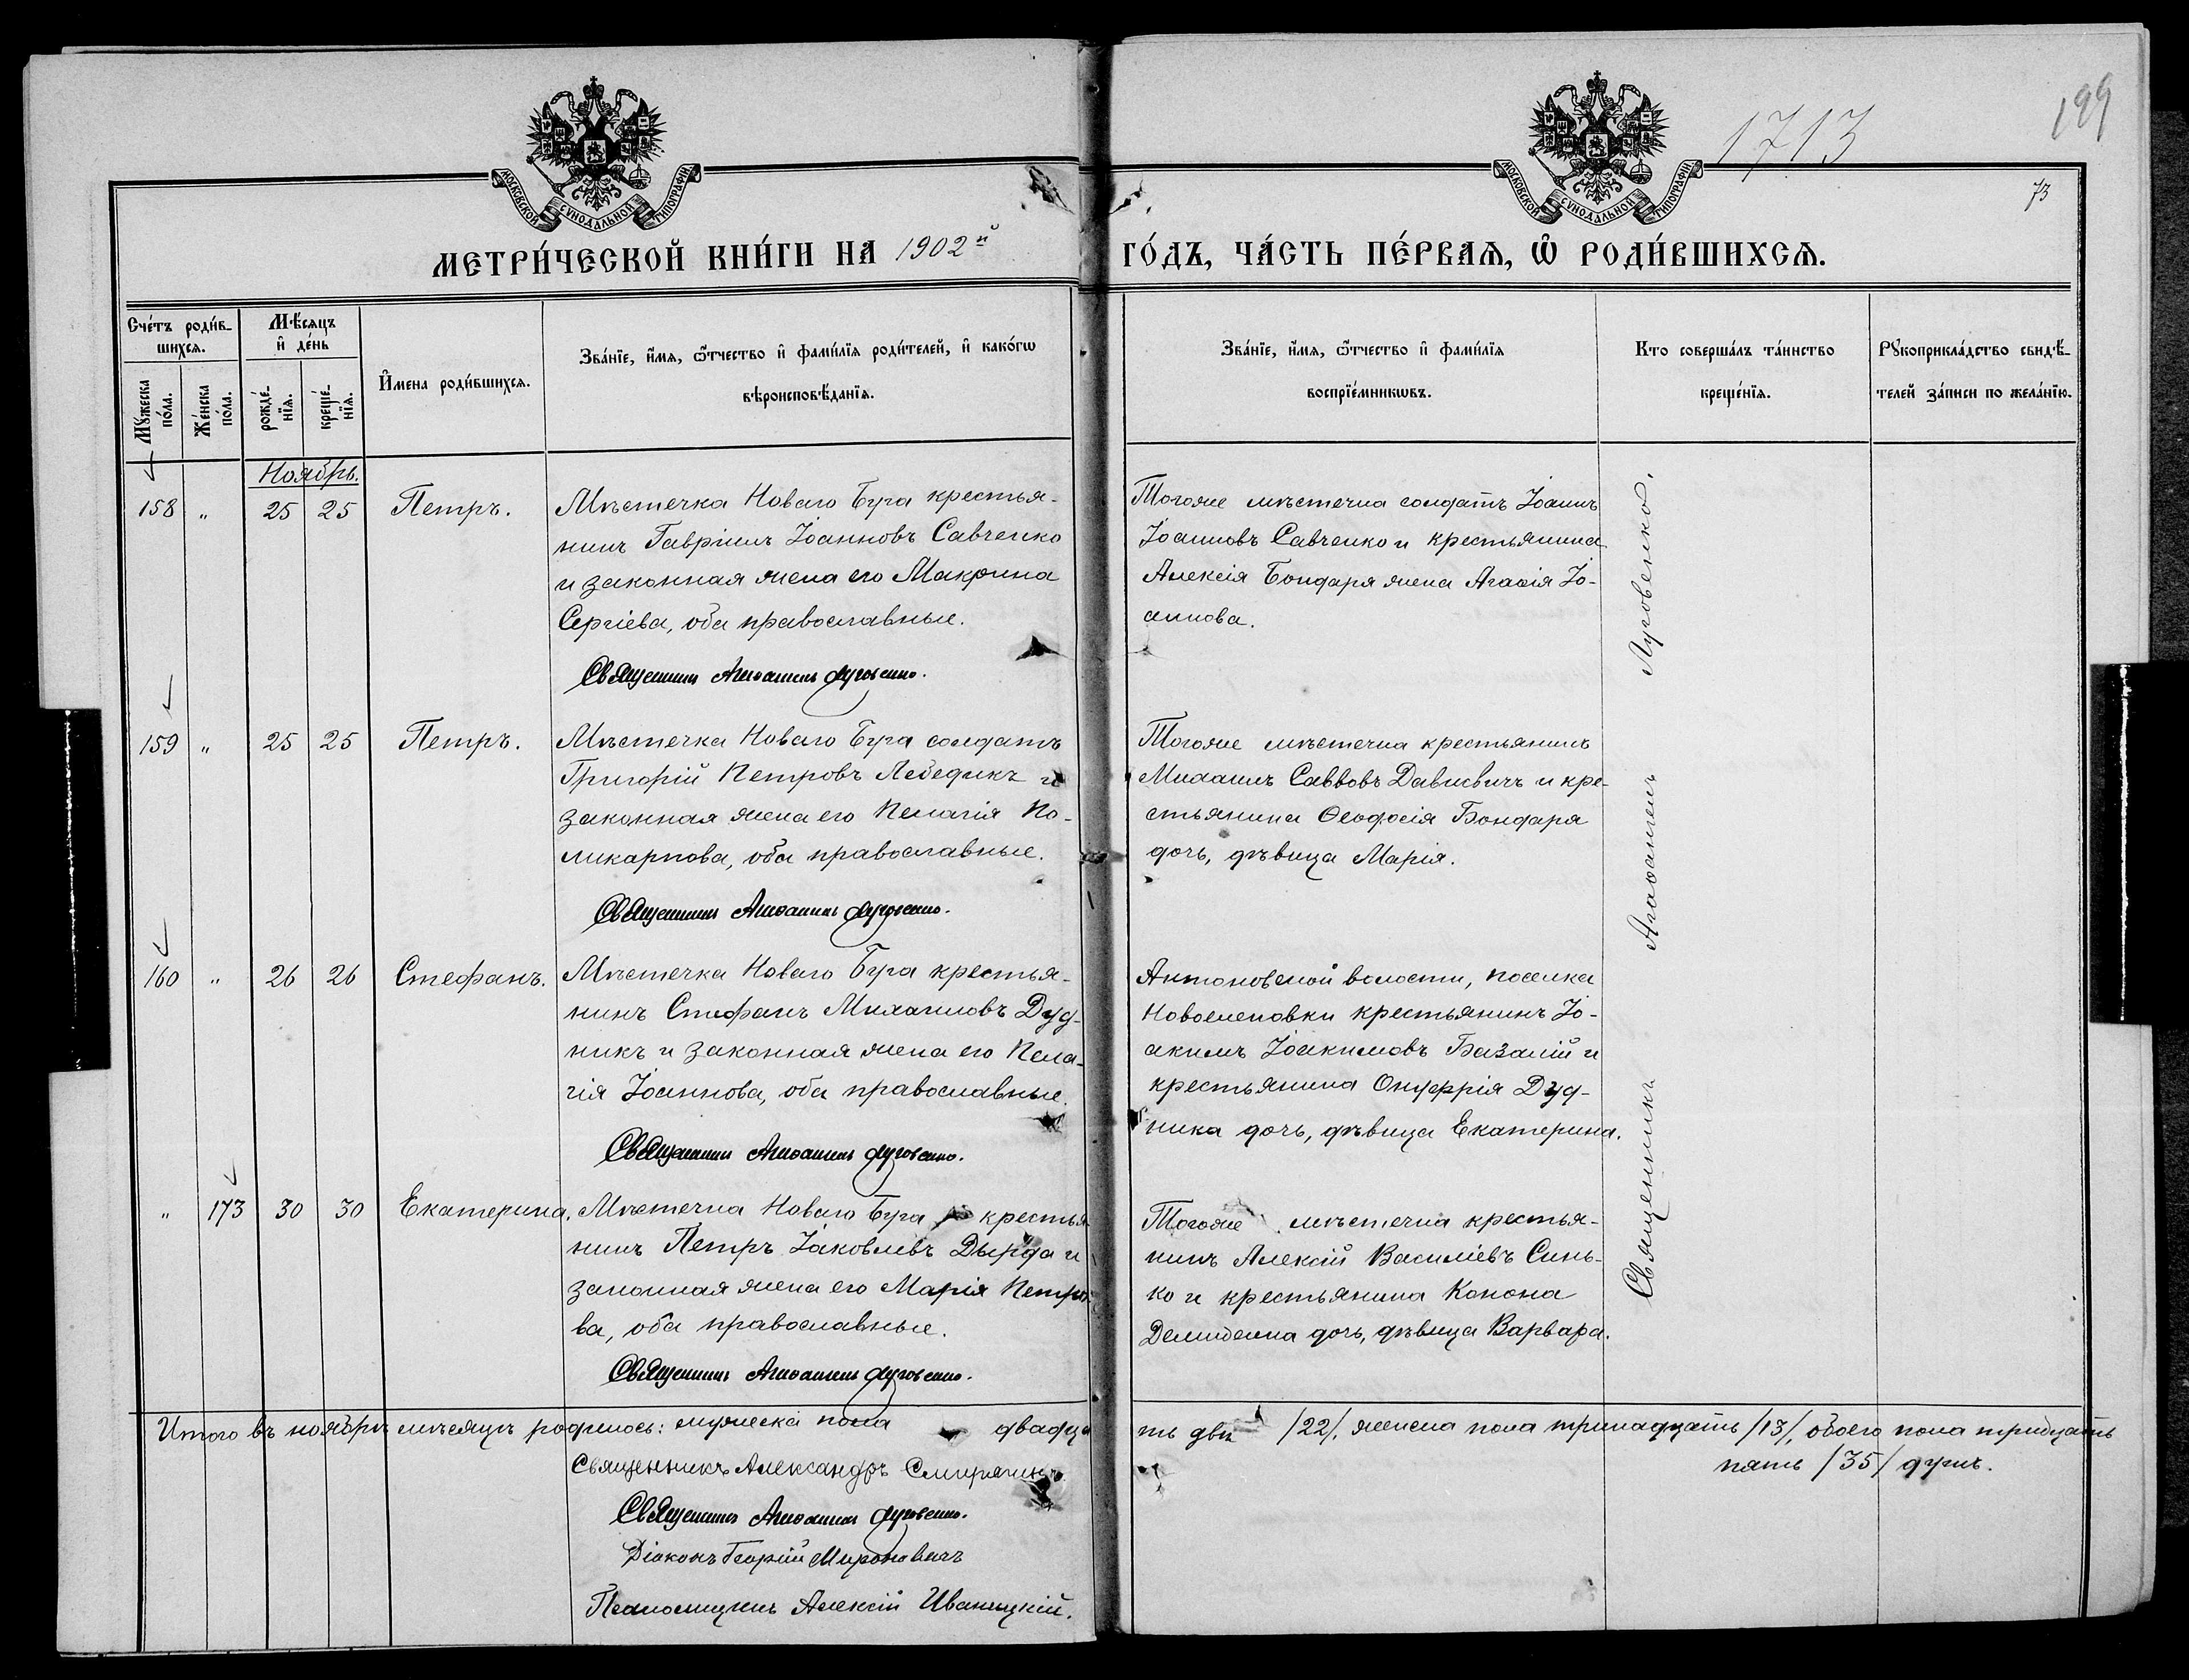 1713
199
73
МОСКОВСКОЙ СУНОДАЛЬНОЙ ТИПОГРАФІИ
МОСКОВСКОЙ СУНОДАЛЬНОЙ ТИПОГРАФІИ
МЕТРИ́ЧЕСКОЙ КНИ́ГИ НА 1902й ГО́ДЪ, ЧА́СТЬ ПЕ́РВАѦ, Ѡ҆ РОДИ́ВШИХСѦ.
Сче́тъ роди́в-
шихсѧ.
Мꙋ́жеска по́ла.
Же́нска по́ла.
Мѣ́сѧцъ и҆ де́нь
рожде́-нїѧ.
креще́-нїѧ.
И҆мена роди́вшихсѧ.
Зва́нїе, и҆́мѧ, ѻ҆́тчество и҆ фами́лїѧ роди́телей, и҆ како́гѡ
вѣроисповѣ́данїѧ.
Зва́нїе, и҆́мѧ, ѻ҆́тчество и҆ фами́лїѧ
воспрїе́мникѡвъ.
Кто соверша́лъ та́инство
креще́нїѧ.
Рꙋкоприкла́дство свидѣ́-
телей за́писи по жела́нїю.
Ноябрь.
158 " 25 25 Петръ.
Мѣстечка Новаго Буга крестья-
нинъ Гавріилъ Іоанновъ Савченко
и законная жена его Макрина
Сергіева, оба православные.
Священникъ Агаѳангелъ Луговенко.
Тогоже мѣстечка солдатъ Іоаннъ
Іоанновъ Савченко и крестьянина
Алексія Бондаря жена Агаѳія Іо-
аннова.
159 " 25 25 Петръ.
Мѣстечка Новаго Буга солдатъ
Григорій Петровъ Лебедикъ и
законная жена его Пелагія По-
ликарпова, оба православные.
Священникъ Агаѳангелъ Луговенко.
Тогоже мѣстечка крестьянинъ
Михаилъ Саввовъ Давлевичъ и кре-
стьянина Ѳеодосія Бондаря
дочь, дѣвица Марія.
160 " 26 26 Стефанъ.
Мѣстечка Новаго Буга крестья-
нинъ Стефанъ Михаиловъ Дуд-
никъ и законная жена его Пела-
гія Іоаннова, оба православные.
Священникъ Агаѳангелъ Луговенко.
Антоновской волости, поселка
Новоселовки крестьянинъ Іо-
акимъ Іоакимовъ Базалій и
крестьянина Онуфрія Дуд-
ника дочь, дѣвица Екатерина.
" 173 30 30 Екатерина.
Мѣстечка Новаго Буга крестья-
нинъ Петръ Іаковлевъ Дырда и
законная жена его Марія Петро-
ва, оба православные.
Священникъ Агаѳангелъ Луговенко.
Тогоже мѣстечка крестья-
нинъ Алексій Василіевъ Синь-
ко и крестьянина Конона
Демиденка дочь, дѣвица Варвара.
Священникъ Агаѳангелъ Луговенко.
Итого въ ноябрѣ мѣсяцѣ родилось: мужеска пола двадца
ть два /22/, женска пола тринадцать /13/, обоего пола тридцать
пять /35/ душъ.
Священникъ Александръ Смирягинъ.
Священникъ Агаѳангелъ Луговенко.
Діаконъ Георгій Мироновичъ
Псаломщикъ Алексій Иваницкій.